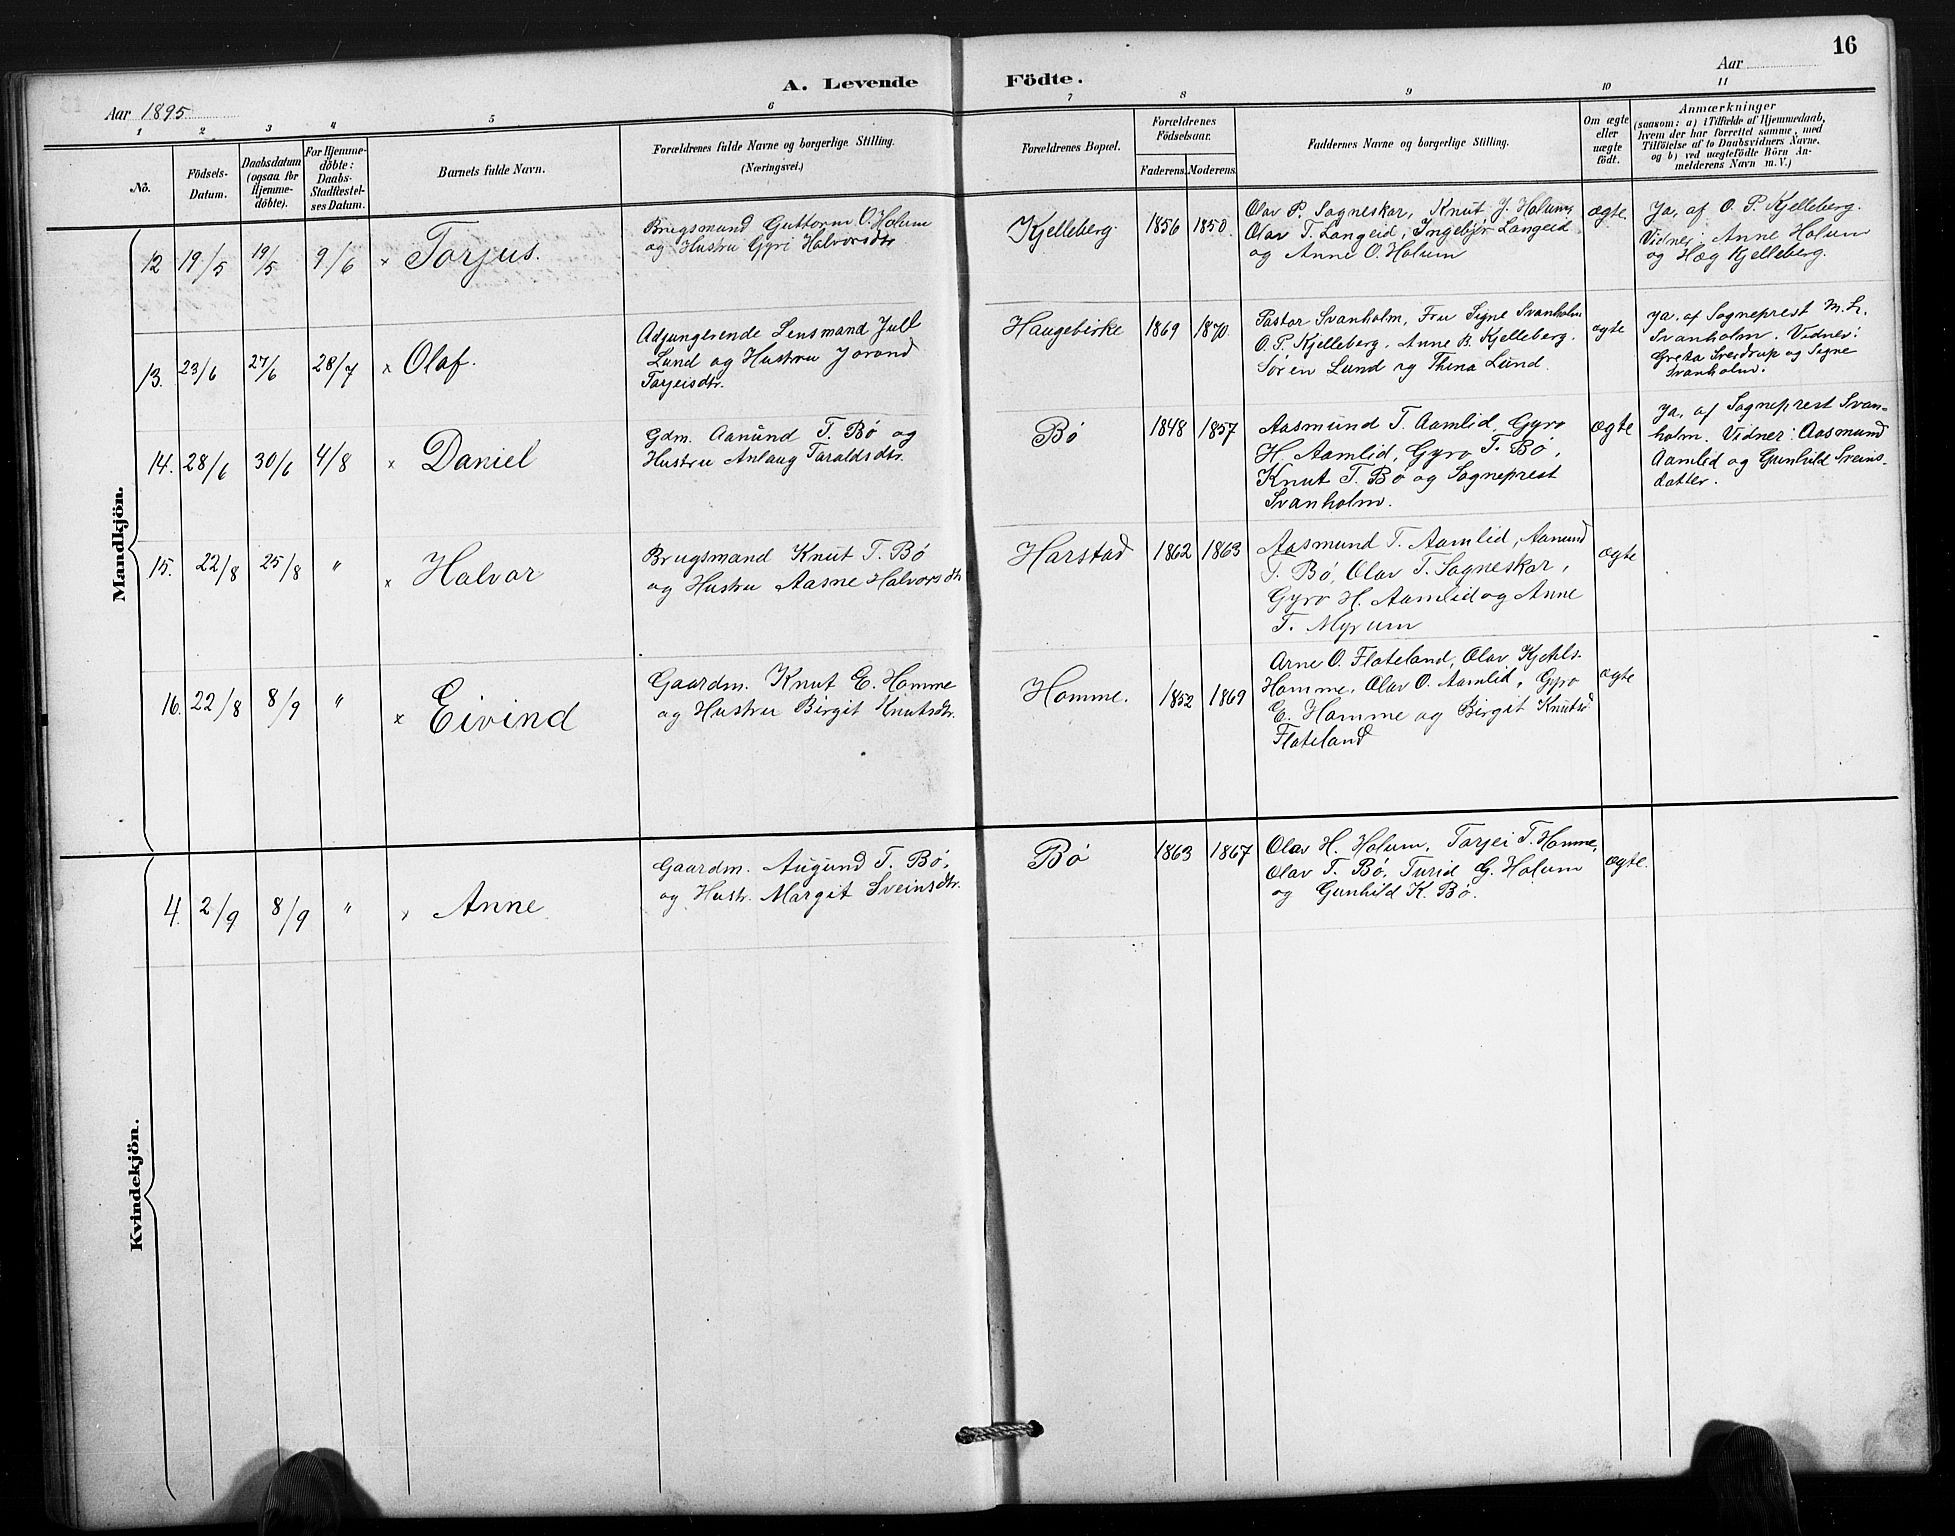 16
A. Levende Födte.
Aar 1895
Aar
1 2 3 4 5 6 7 8 9 10 11
No.
Födsels-
Datum.
Daabsdatum
(ogsaa for
Hjemme-
döbte).
For Hjemme-
döbte:
Daabs-
Stadfæstel-
ses Datum.
Barnets fulde Navn.
Forældrenes fulde Navne og borgerlige Stilling.
(Næringsvei.)
Forældrenes Bopæl.
Forældrenes
Födselsaar.
Faderens. Moderens.
Faddernes Navne og borgerlige Stilling.
Om ægte
eller
uægte
født.
Anmærkninger
(saasom: a) i Tilfælde af Hjemmedaab,
hvem der har forrettet samme, med
Tilföielse af to Daabsvidners Navne,
og b) ved uægtefödte Börn An-
melderens Navn m. V.)
Mandkjön.
12 19/5 19/5 9/6 x Torjus.
Brugsmand Guttorm O. Holum
og Hustru Gyri Halvorsdtr.
Kjelleberg. 1856 1850.
Olav P. Sagneskar, Knut J. Holum,
Olav T. Langeid, Ingebjør Langeid
og Anne O. Holum
ægte.
Ja, af O. P. Kjelleberg.
Vidner: Anne Holum
og Hæg Kjelleberg.
13. 23/6 27/6 28/7 x Olaf.
Adjungerende Lensmand Jull
Lund og Hustru Jorand
Tarjeisdtr.
Haugebirke 1869 1870.
Pastor Svanholm, Fru Signe Svanholm
O. P. Kjelleberg, Anne B. Kjelleberg.
Søren Lund og Thina Lund.
ægte
Ja. af Sogneprest M. L.
Svanholm. Vidner:
Greta Sverdrup og Signe
Svanholm.
14. 28/6 30/6 4/8 x Daniel
Gdm. Aanund T. Bø og
Hustru Anlaug Taraldsdtr.
Bø 1848 1857
Aasmund T. Aamlid, Gyro
H. Aamlid, Gyro T. Bø,
Knut T. Bø og Sogneprest
Svanholm.
ægte
Ja, af Sogneprest Svan-
holm. Vidner: Aasmund
Aamlid og Gunhild Sveins-
datter.
15. 22/8 25/8 " x Halvor
Brugsmand Knut T. Bø
og Hustru Aasne Halvorsdtr
Harstad 1862 1863
Aasmund T. Aamlid, Aanund
T. Bø, Olav T. Sagneskar,
Gyro H. Aamlid og Anne
T. Myrum
ægte
16. 22/8 8/9 " x Eivind
Gaardm. Knut E. Homme
og Hustru Birgit Knutsdtr.
Homme. 1852 1869
Arne O. Flateland, Olav Kjetils-
Homme, Olav O. Aamlid, Gyro
E. Homme og Birgit Knutsd
Flateland
ægte
Kvindekjön.
4. 2/9 8/9 " x Anne
Gaardm. Augund T. Bø,
og Hustr. Margit Sveinsdtr.
Bø 1863 1867
Olav H. Holum, Tarjei T. Homme,
Olav T. Bø, Turid G. Holum
og Gunhild K. Bø.
ægte.